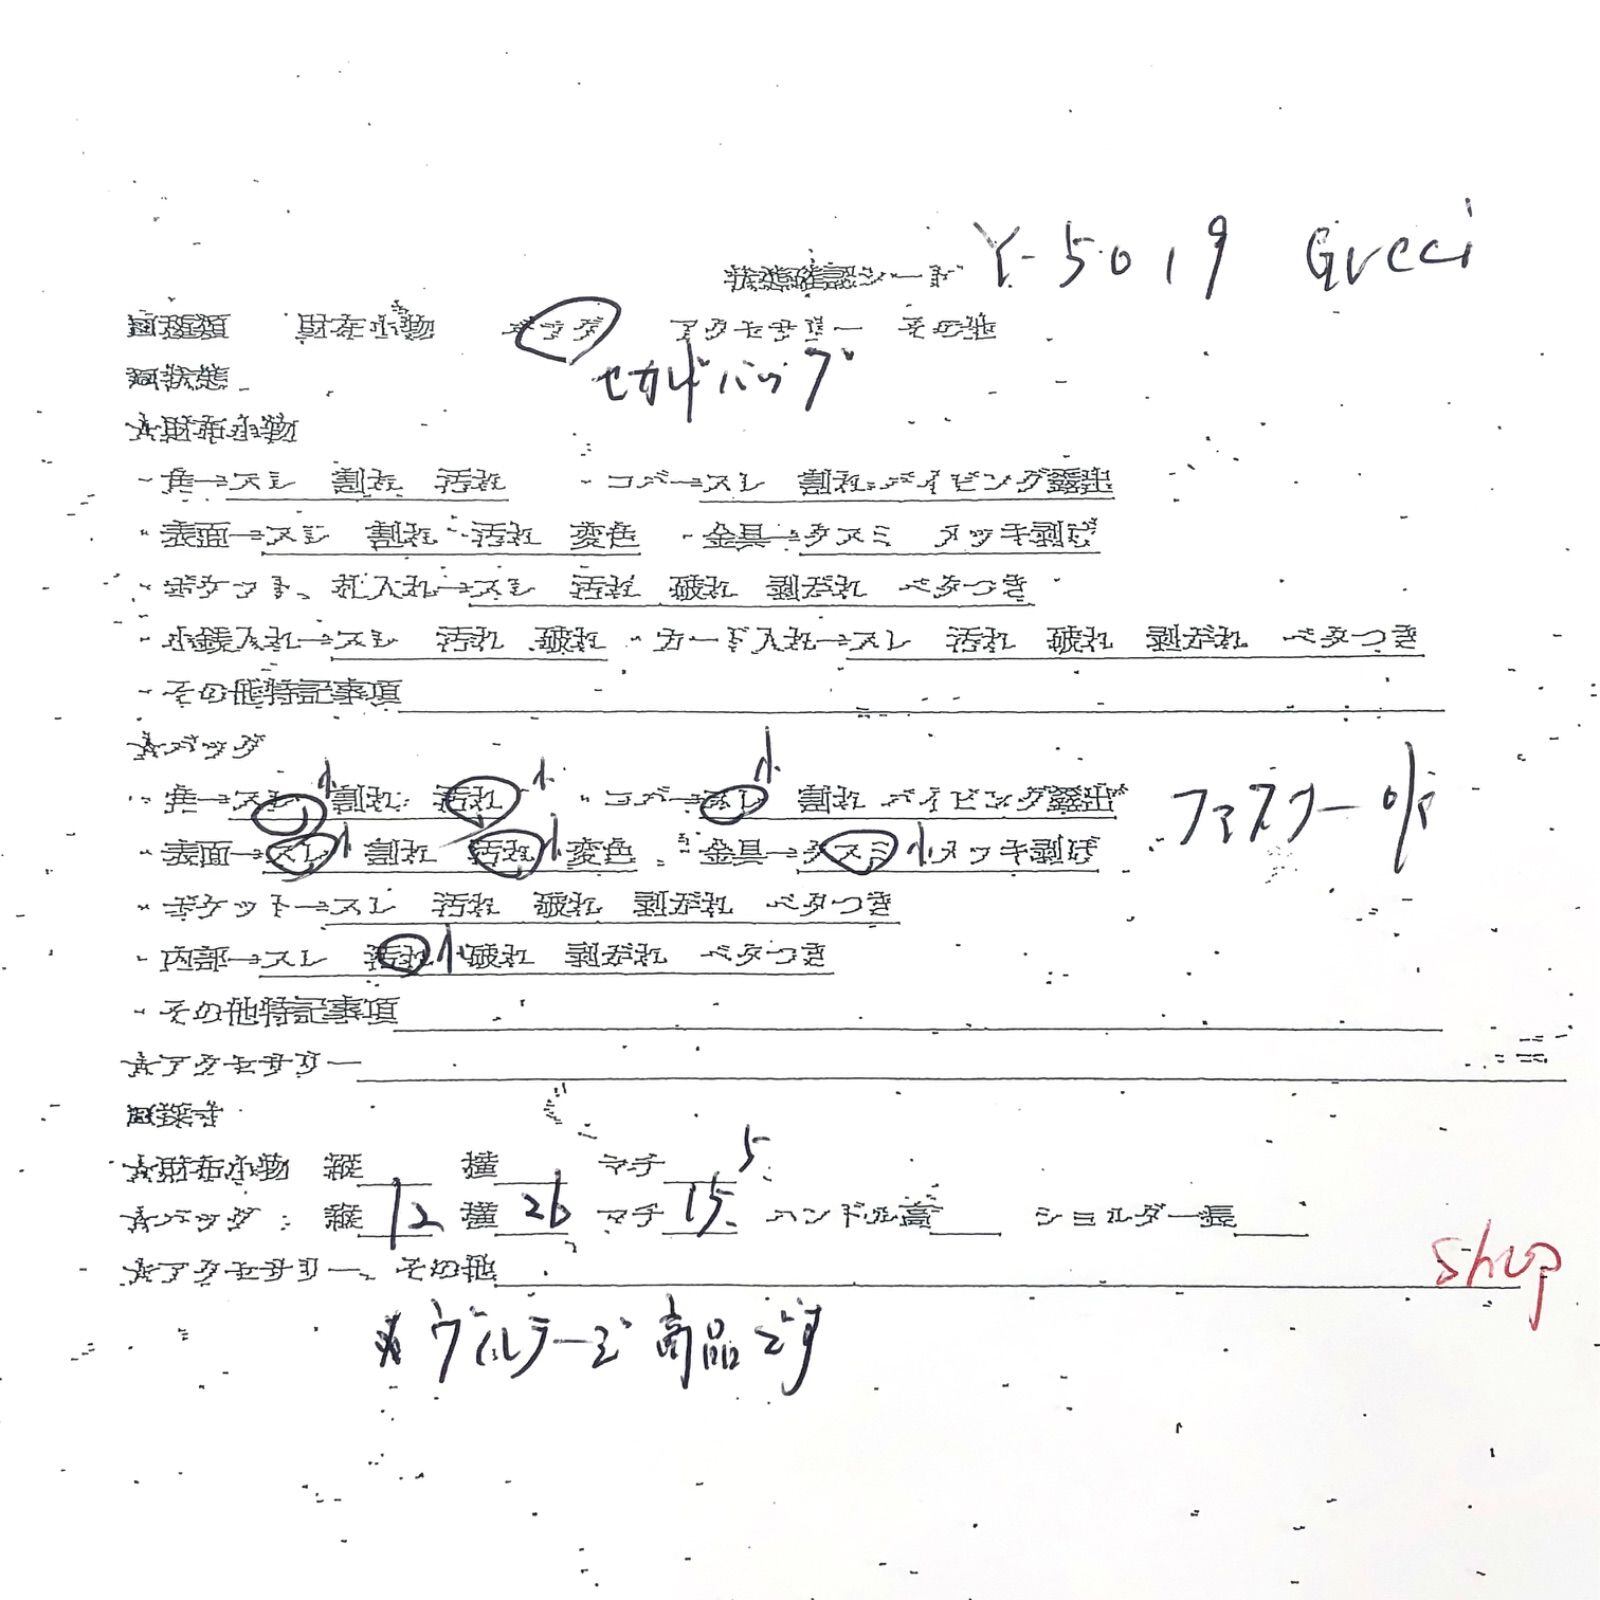 状態確認シート Y-5019 Gucci
■種類 財布小物 バッグ アクセサリー その他
セカンドバッグ
■状態
☆財布小物
・角→スレ 割れ 汚れ ・コバ→スレ 割れ パイピング露出
・表面→スレ 割れ 汚れ 変色 ・金具→クスミ メッキ剥げ
・ポケット、札入れ→スレ 汚れ 破れ 剥がれ ベタつき
・小銭入れ→スレ 汚れ 破れ ・カード入れ→スレ 汚れ 破れ 剥がれ ベタつき
・その他特記事項
☆バッグ
・角→スレ 小 割れ 汚れ 小 ・コバ→スレ 小 割れ パイピング露出
ファスナー
・表面→スレ 小 割れ 汚れ 小 変色 ・金具→クスミ 小 メッキ剥げ
・ポケット→スレ 汚れ 破れ 剥がれ ベタつき
・内部→スレ 汚れ 小 破れ 剥がれ ベタつき
・その他特記事項
☆アクセサリー
■採寸
☆財布小物 縦 横 マチ
☆バッグ 縦 12 横 26 マチ 15.5 ハンドル高 ショルダー長
☆アクセサリー、その他
shop
※ヴィンテージ商品です